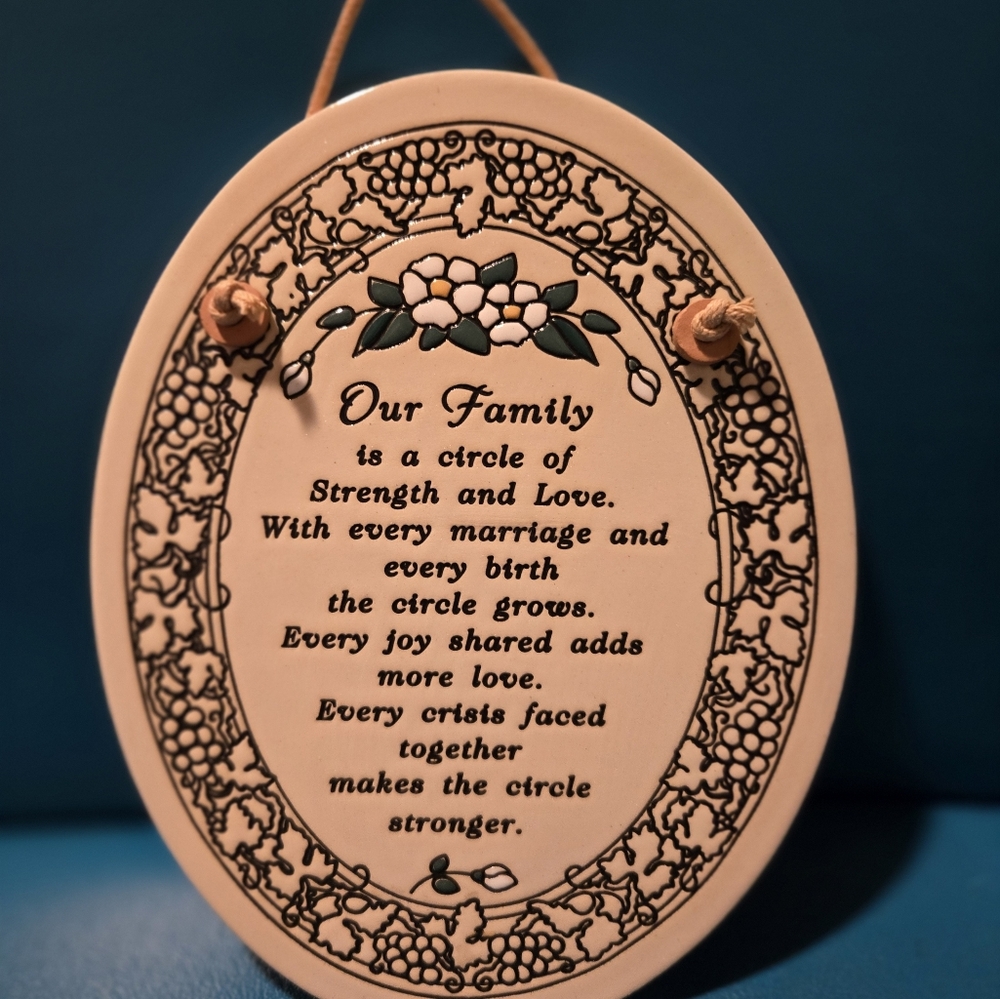 Our Family
is a circle of
Strength and Love.
With every marriage and
every birth
the circle grows.
Every joy shared adds
more love.
Every crisis faced
together
makes the circle
stronger.